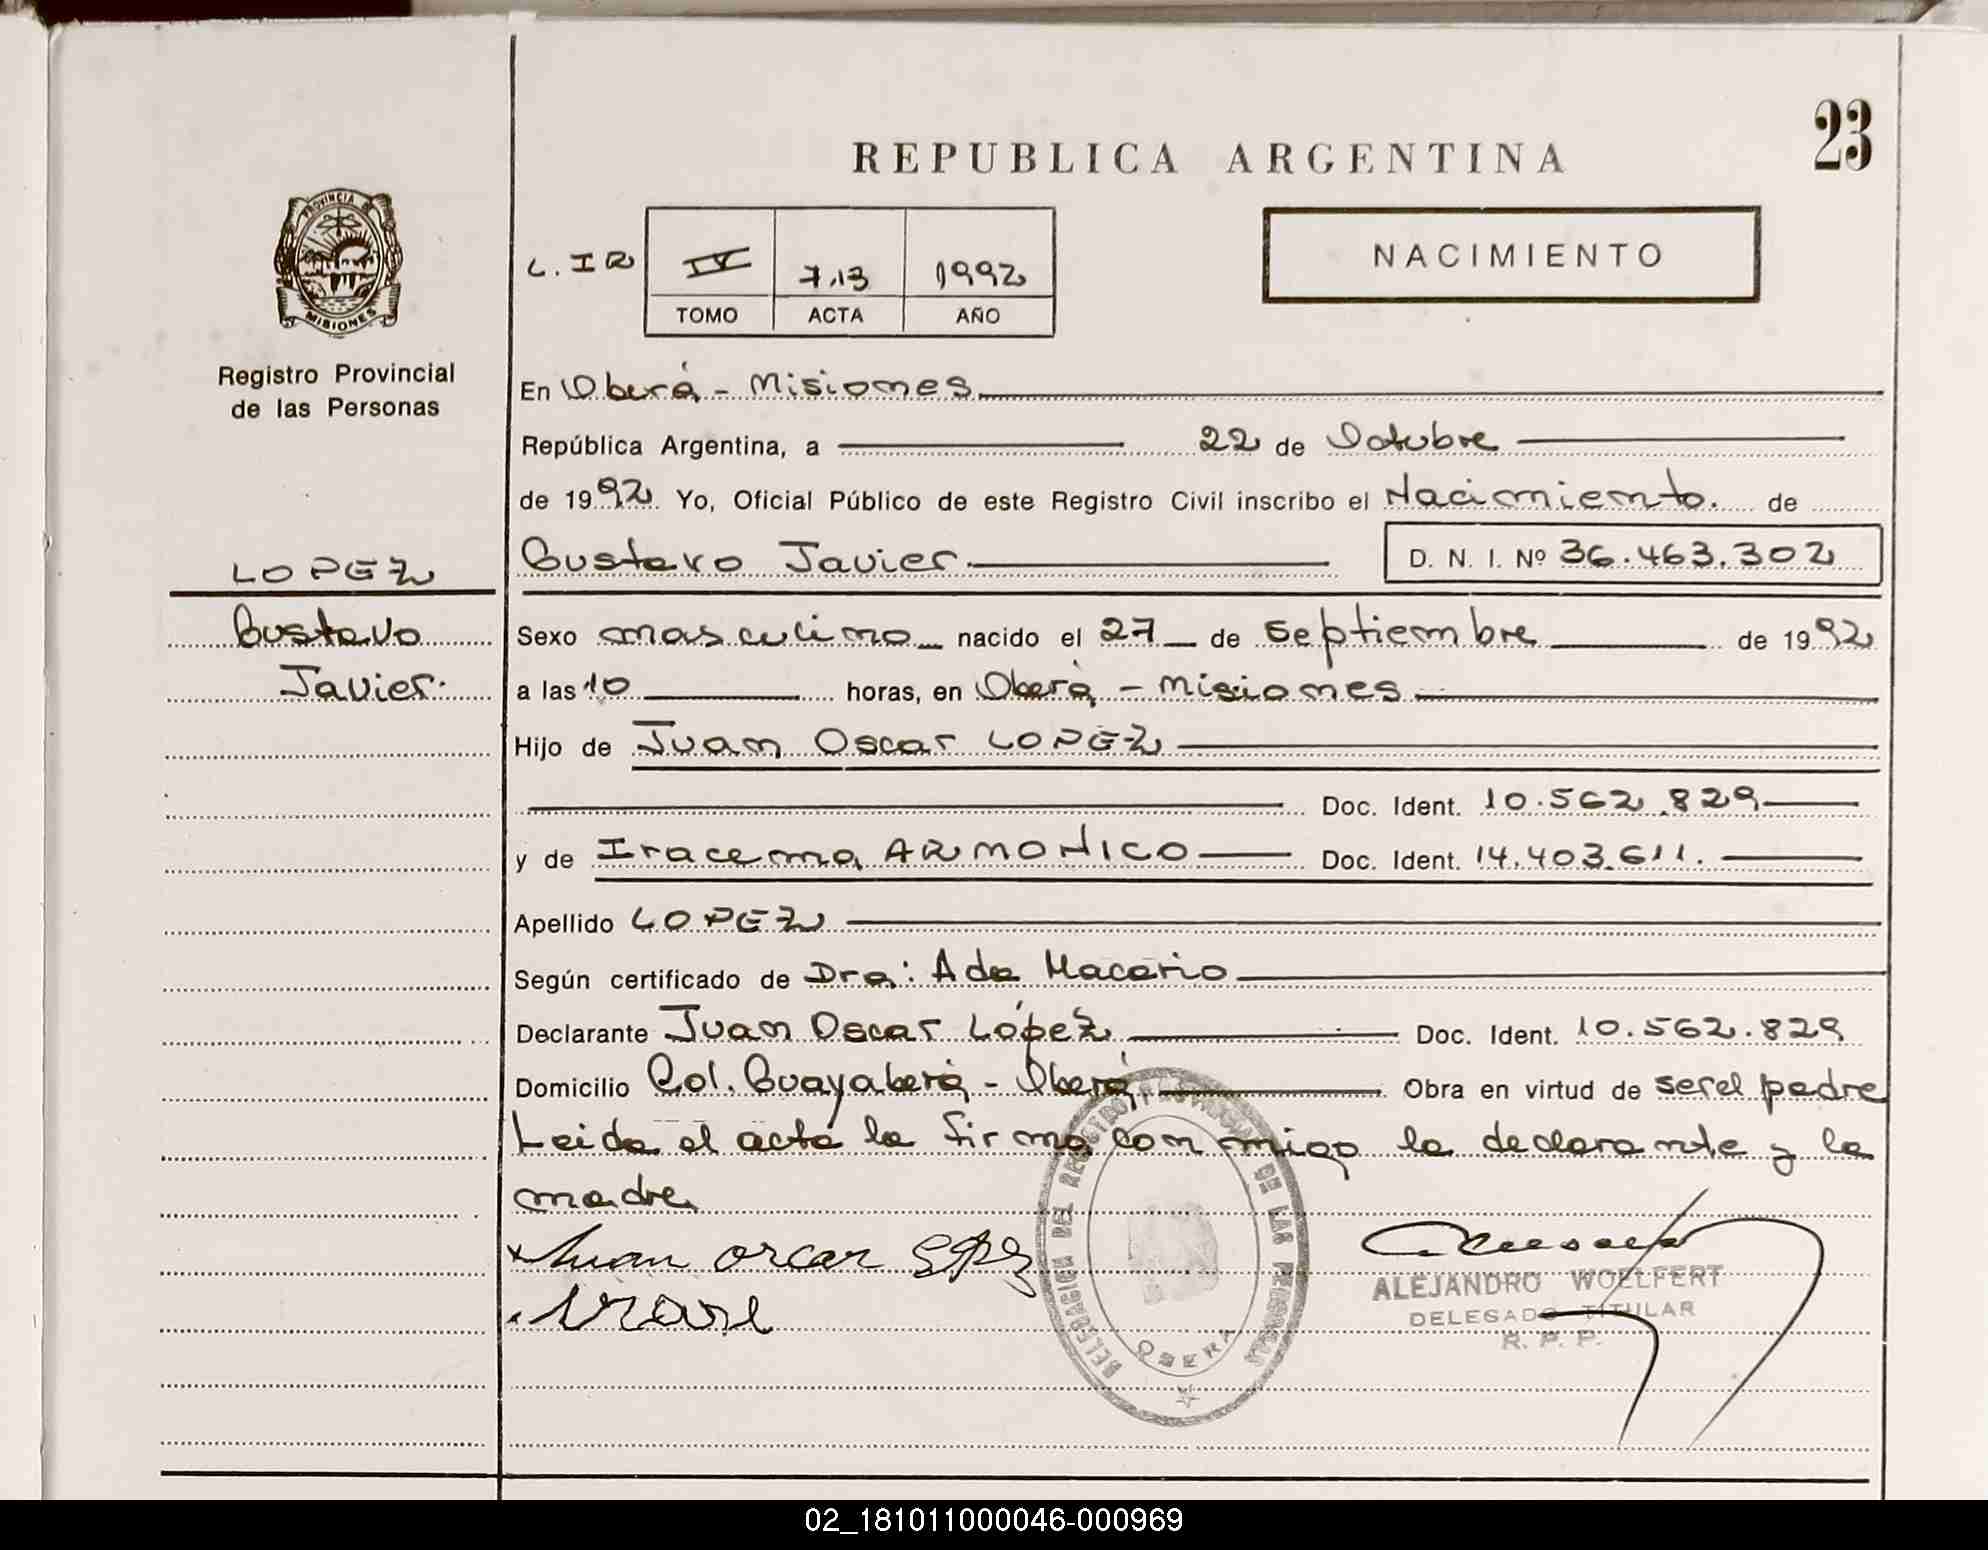 23
REPUBLICA ARGENTINA
NACIMIENTO
PROVINCIA DE
MISIONES
L. IR
IV 713 1992
TOMO ACTA AÑO
Registro Provincial
de las Personas
En Oberá - Misiones
República Argentina, a 22 de Octubre
de 1992 Yo, Oficial Público de este Registro Civil inscribo el Nacimiento. de
Gustavo Javier. D. N. I. Nº 36.463.302
LOPEZ
Gustavo
Javier.
Sexo masculino nacido el 27 de septiembre de 1992
a las 10 horas, en Oberá - Misiones
Hijo de Juan Oscar LOPEZ
Doc. Ident. 10.562.829
y de Iracema ARMONICO Doc. Ident. 14.403.611.
Apellido LOPEZ
Según certificado de Dra: Ada Macario
Declarante Juan Oscar López Doc. Ident. 10.562.829
Domicilio Col. Guayabera - Oberá Obra en virtud de ser el padre
Leida el acta la firma con migo la declarante y la
madre
Juan oscar
DELEGACION DEL REGISTRO PROVINCIAL DE LAS PERSONAS
OBERA
ALEJANDRO WOELFERT
DELEGADO TITULAR
R. P. P.
02_181011000046-000969